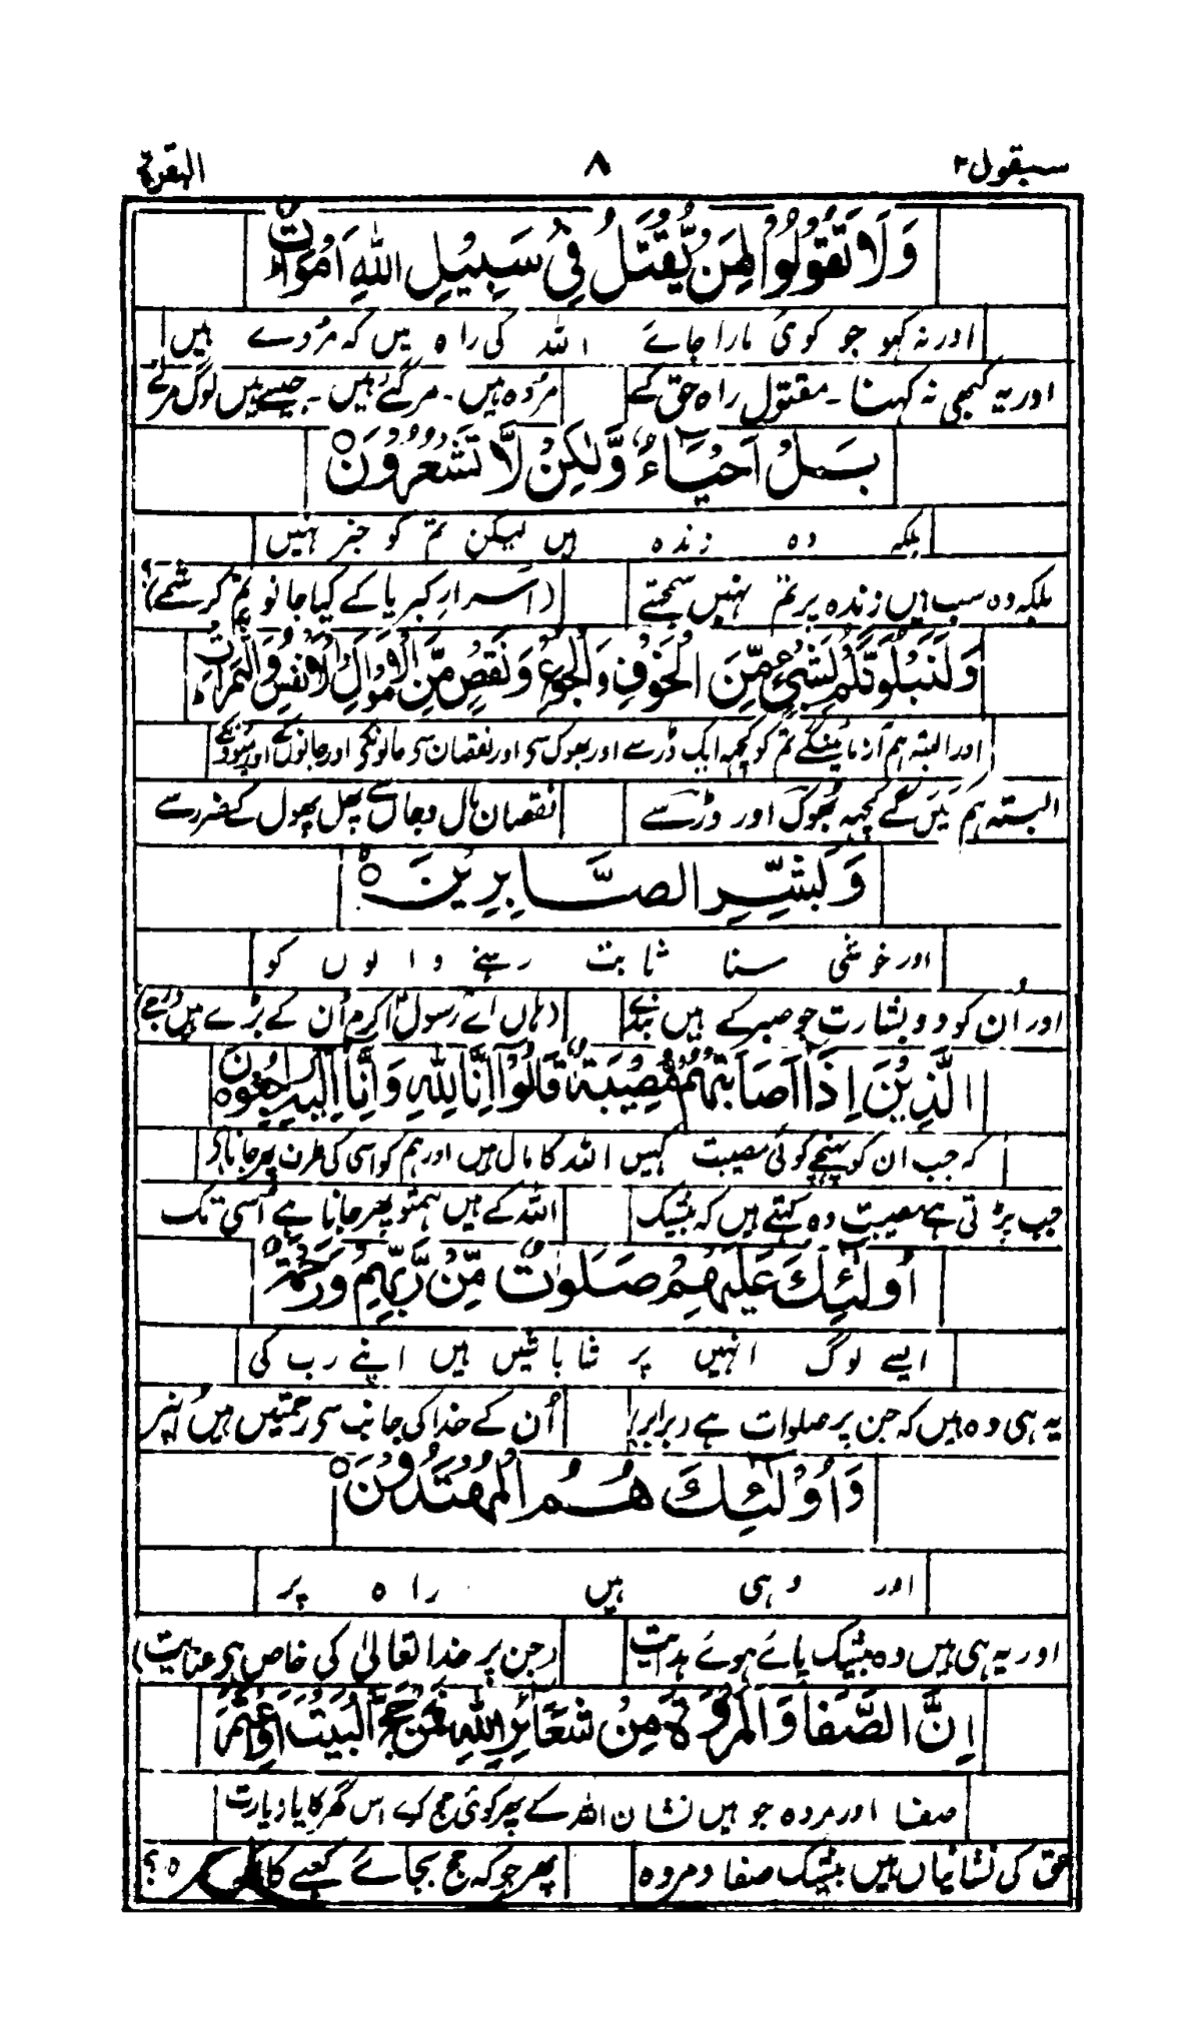 سیقول ۲ ۸ البقرة
وَلَا تَقُوْلُوْا لِمَنْ يُّقْتَلُ فِيْ سَبِيْلِ اللّٰهِ اَمْوَاتٌ
اور نہ کہو جو کوئی مارا جائے اللہ کی راہ میں کہ مردے ہیں
اور یہ کبھی نہ کہنا۔ مقتول راہ حق کے مردہ ہیں۔ مر گئے ہیں۔ جیسے ہیں لوگ مرتے
بَلْ اَحْيَاءٌ وَّلٰكِنْ لَّا تَشْعُرُوْنَ ○
بلکہ وہ زندہ ہیں لیکن تم کو خبر نہیں
بلکہ وہ سب ہیں زندہ پر تم نہیں سمجھتے (اسرارِ کبریا کے کیا جانو تم کرشمے؟)
وَلَنَبْلُوَنَّكُمْ بِشَيْءٍ مِّنَ الْخَوْفِ وَالْجُوْعِ وَنَقْصٍ مِّنَ الْاَمْوَالِ وَالْاَنْفُسِ وَالثَّمَرَاتِ
اور البتہ ہم آزمائینگے تم کو کچھ ایک ڈر سے اور بھوک سی اور نقصان سی مالونکی اور جانوں کے اور میوونکے
البتہ ہم کے کچھ بھوک اور ڈر سے نقصان مال و جاں سے پھل پھول کے ضرر سے
وَبَشِّرِ الصَّابِرِيْنَ ○
اور خوشی سنا ثابت رہنے والوں کو
اور اُن کو دو بشارت جو صبر کے ہیں بندے (ہاں اے رسول اکرم اُن کے بڑے ہیں درجے)
الَّذِيْنَ اِذَا اَصَابَتْهُمْ مُّصِيْبَةٌ قَالُوْا اِنَّا لِلّٰهِ وَاِنَّا اِلَيْهِ رَاجِعُوْنَ ○
کہ جب ان کو پہنچے کوئی مصیبت کہیں اللہ کا مال ہیں اور ہم کو اسی کی طرف پھر جانا ہی
جب پڑتی ہے مصیبت وہ کہتے ہیں کہ بیشک اللہ کے ہیں ہمتو پھر جانا ہے اُسی تک
اُولٰئِكَ عَلَيْهِمْ صَلَوَاتٌ مِّنْ رَّبِّهِمْ وَرَحْمَةٌ
ایسے لوگ انہیں پر شاباشیں ہیں اپنے رب کی
یہ ہی وہ ہیں کہ جن پر صلوات ہے (برابر) اُن کے خدا کی جانب سی رحمتیں ہیں اُنپر
وَاُوْلٰئِكَ هُمُ الْمُهْتَدُوْنَ ○
اور وہی ہیں راہ پر
اور یہ ہی ہیں وہ بیشک پائے ہوئے ہدایت (جن پر خدا تعالیٰ کی خاص ہی عنایت)
اِنَّ الصَّفَا وَالْمَرْوَةَ مِنْ شَعَائِرِ اللّٰهِ فَمَنْ حَجَّ الْبَيْتَ اَوِ اعْتَمَرَ
صفا اور مروہ جو ہیں نشان اللہ کے پھر کوئی حج کرے اس گھر کا یا زیارت
حق کی نشانیاں ہیں بیشک صفا و مروہ پھر جو کہ حج بجائے کعبے کا